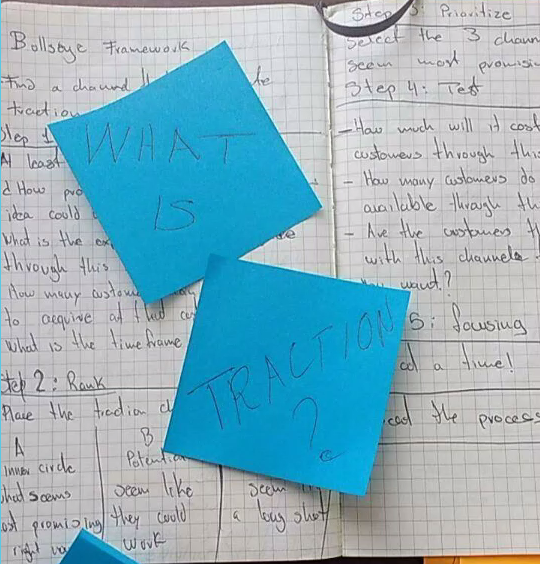 Bollseye Framework
Find a channel
traction
Step 1
At least
d How pro
idea could
What is the ex
through this
How many custome
to acquire at that
What is the timeframe
Step 2: Rank
Place the traction
A
inner circle
what seems
ost promising
right
B
Potenti
seem like
they could
work
seem
a long shot
WHAT
IS
TRACTION
?
Step 3 Prioritize
Select the 3 chann
seem most promisi
Step 4: Test
- How much will it cost
customers through this
- How many customers do
available through th
- Are the customers
with this channel
you want?
5: focusing
at a time!
the process